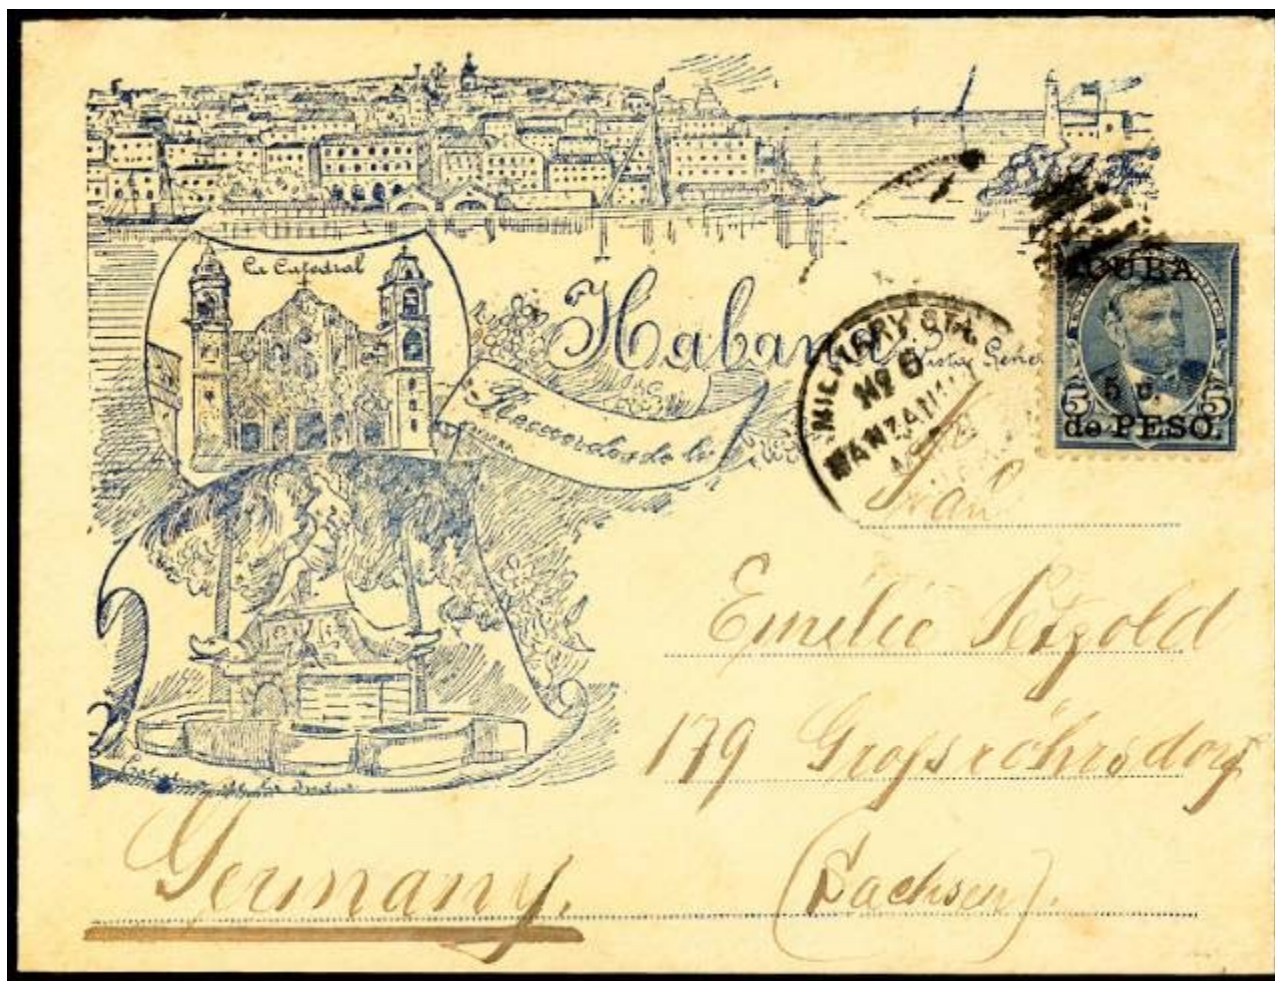 La Catedral
Habana
Vista Gener
Recuerdos de la
MILITARY STA.
No 6
MANZANILLO
CUBA
5 c.
de PESO.
5 5
Frau
Emilie Petzold
179 Grossröhrsdorf
(Sachsen).
Germany.